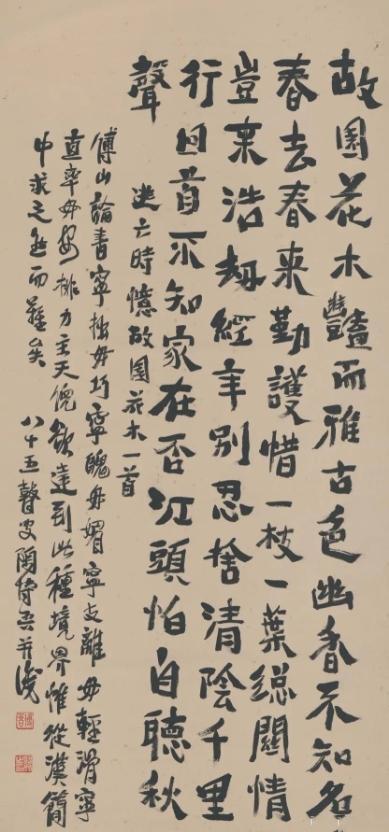 故園花木豔而雅古色幽香不知名
春去春来勤護惜一枝一葉總關情
豈来浩劫經年別忍捨清陰千里
行回首不知家在否江頭怕自聽秋
聲
逃亡時憶故園花木一首
傅山論書寧拙毋巧寧醜毋媚寧支離毋輕滑寧
直率毋安排力主天倪欲達到此種境界惟從漢簡
中求之然而難矣
八十五瞽叟陶博吾并識